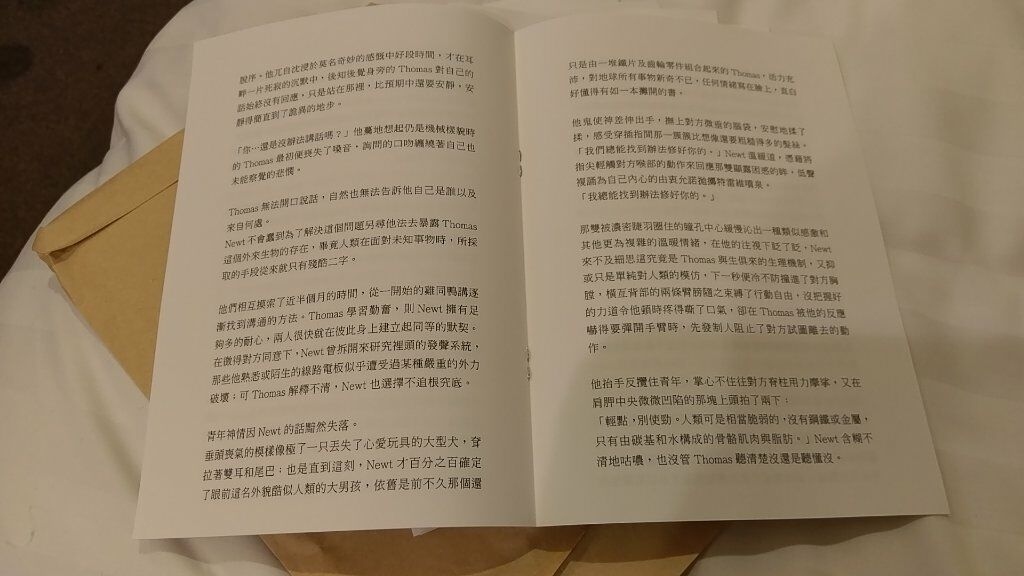 脫序。他兀自沈浸於莫名奇妙的感慨中好段時間，才在耳
畔一片死寂的沉默中，後知後覺身旁的 Thomas 對自己的
話始終沒有回應，只是站在那裡，比預期中還要安靜，安
靜得簡直到了詭異的地步。
「你…還是沒辦法講話嗎？」他驀地想起仍是機械樣貌時
的 Thomas 最初便喪失了嗓音，詢問的口吻纏繞著自己也
未能察覺的悲憫。
Thomas 無法開口說話，自然也無法告訴他自己是誰以及
來自何處。
Newt 不會蠢到為了解決這個問題另尋他法去暴露 Thomas
這個外來生物的存在，畢竟人類在面對未知事物時，所採
取的手段從來就只有殘酷二字。
他們相互摸索了近半個月的時間，從一開始的雞同鴨講逐
漸找到溝通的方法。Thomas 學習勤奮，則 Newt 擁有足
夠多的耐心，兩人很快就在彼此身上建立起同等的默契。
在徵得對方同意下，Newt 曾拆開來研究裡頭的發聲系統，
那些他熟悉或陌生的線路電板似乎遭受過某種嚴重的外力
破壞；可 Thomas 解釋不清，Newt 也選擇不追根究底。
青年神情因 Newt 的話黯然失落。
垂頭喪氣的模樣像極了一只丟失了心愛玩具的大型犬，耷
拉著雙耳和尾巴；也是直到這刻，Newt 才百分之百確定
了跟前這名外貌酷似人類的大男孩，依舊是前不久那個還
只是由一堆鐵片及齒輪零件組合起來的 Thomas，活力充
沛，對地球所有事物新奇不已，任何情緒寫在臉上，直白
好懂得有如一本攤開的書。
他鬼使神差伸出手，撫上對方微垂的腦袋，安慰地揉了
揉，感受穿插指間那一簇簇比想像還要粗糙得多的髮絲。
「我們總能找到辦法修好你的。」Newt 溫暖道，憑藉將
指尖輕觸對方喉部的動作來回應那雙顯露困惑的眸，低聲
複誦為自己內心的由衷允諾拋擲符當維噴泉。
「我總能找到辦法修好你的。」
那雙被濃密睫羽圈住的瞳孔中心緩慢沁出一種類似感激和
其他更為複雜的溫暖情緒，在他的注視下眨了眨，Newt
來不及細思這究竟是 Thomas 與生俱來的生理機制，又抑
或只是單純對人類的模仿，下一秒便冷不防撞進了對方胸
膛，橫亙背部的兩條臂膀隨之束縛了行動自由，沒把握好
的力道令他頓時疼得嘶了口氣，卻在 Thomas 被他的反應
嚇得要彈開手臂時，先發制人阻止了對方試圖離去的動
作。
他抬手反攬住青年，掌心不住往對方脊柱用力摩挲，又在
肩胛中央微微凹陷的那塊上頭拍了兩下：
「輕點，別使勁。人類可是相當脆弱的，沒有鋼鐵或金屬，
只有由碳基和水構成的骨骼肌肉與脂肪。」Newt 含糊不
清地咕噥，也沒管 Thomas 聽清楚沒還是聽懂沒。